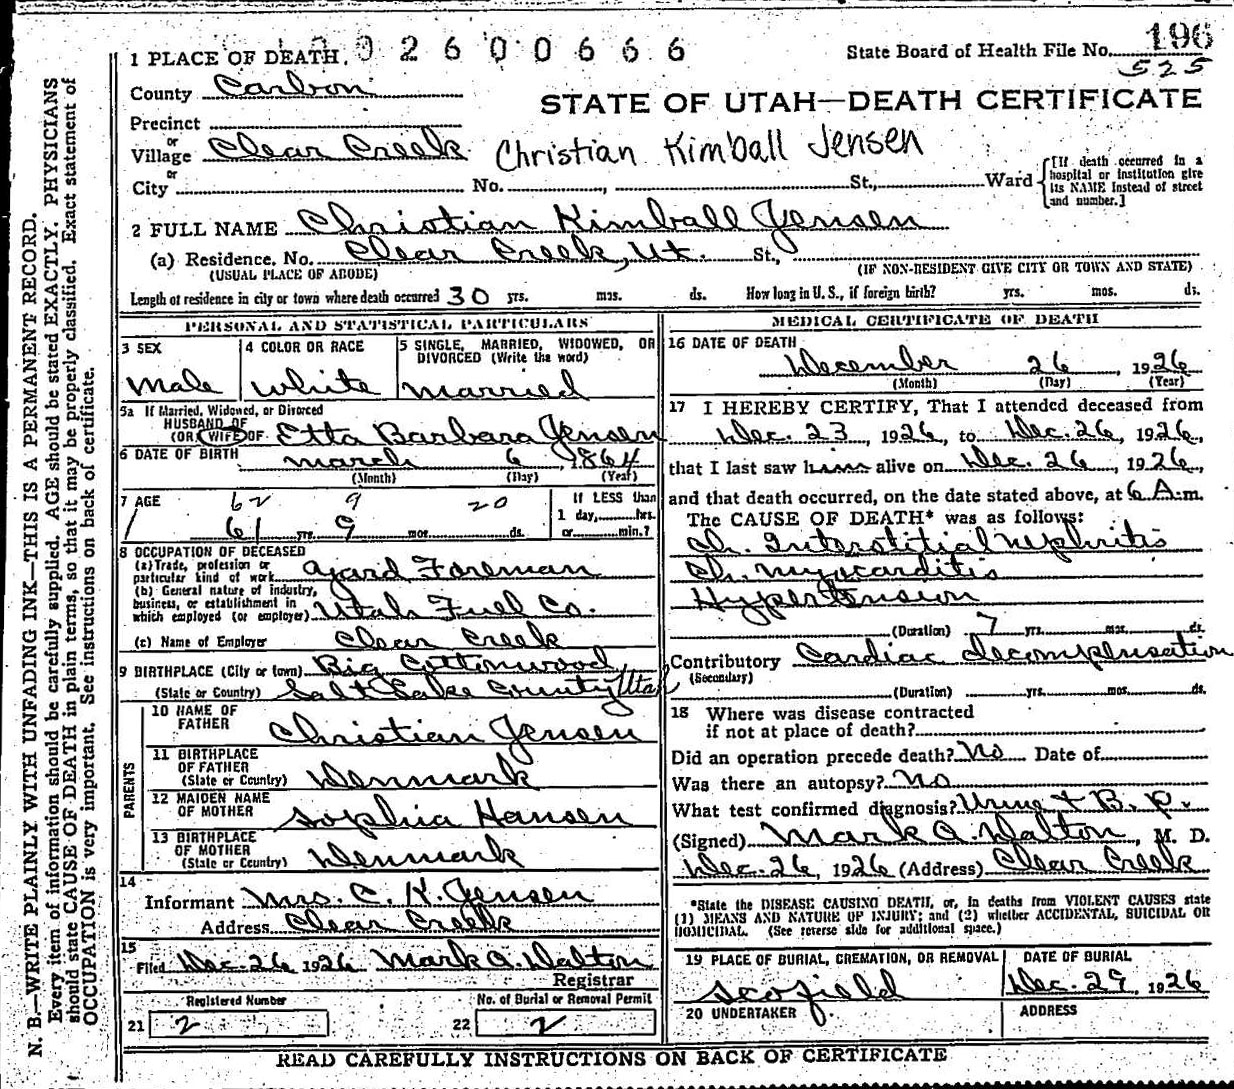 N. B.—WRITE PLAINLY WITH UNFADING INK—THIS IS A PERMANENT RECORD.
Every item of information should be carefully supplied. AGE should be stated EXACTLY. PHYSICIANS
should state CAUSE OF DEATH in plain terms, so that it may be properly classified. Exact statement of
OCCUPATION is very important. See instructions on back of certificate.
1 PLACE OF DEATH. 02600666
State Board of Health File No. 196
525
County Carbon
STATE OF UTAH—DEATH CERTIFICATE
Precinct
or
Village Clear Creek Christian Kimball Jensen
or
City No. St., Ward
[If death occurred in a
hospital or institution give
its NAME instead of street
and number.]
2 FULL NAME Christian Kimball Jensen
(a) Residence. No. Clear Creek, Ut. St.,
(USUAL PLACE OF ABODE) (IF NON-RESIDENT GIVE CITY OR TOWN AND STATE)
Length of residence in city or town where death occurred 30 yrs. mos. ds. How long in U. S., if foreign birth? yrs. mos. ds.
PERSONAL AND STATISTICAL PARTICULARS
3 SEX 4 COLOR OR RACE 5 SINGLE, MARRIED, WIDOWED, OR
DIVORCED (Write the word)
Male White Married
5a If Married, Widowed, or Divorced
HUSBAND OF
(OR) WIFE OF Etta Barbara Jensen
6 DATE OF BIRTH March 6, 1864
(Month) (Day) (Year)
7 AGE 62 9 20
61 yrs. 9 mos. ds.
If LESS than
1 day, hrs.
or min.?
8 OCCUPATION OF DECEASED
(a) Trade, profession or
particular kind of work Yard Foreman
(b) General nature of industry,
business, or establishment in
which employed (or employer) Utah Fuel Co.
(c) Name of Employer Clear Creek
9 BIRTHPLACE (City or town) Big Cottonwood,
(State or Country) Salt Lake County, Utah
PARENTS
10 NAME OF
FATHER Christian Jensen
11 BIRTHPLACE
OF FATHER
(State or Country) Denmark
12 MAIDEN NAME
OF MOTHER Sophia Hansen
13 BIRTHPLACE
OF MOTHER
(State or Country) Denmark
14
Informant Mrs. C. K. Jensen
Address Clear Creek
15
Filed Dec. 26 1926 Mark A. Dalton
Registrar
Registered Number No. of Burial or Removal Permit
21 2 22 2
MEDICAL CERTIFICATE OF DEATH
16 DATE OF DEATH
December 26, 1926
(Month) (Day) (Year)
17 I HEREBY CERTIFY, That I attended deceased from
Dec. 23, 1926, to Dec. 26, 1926,
that I last saw him alive on Dec. 26, 1926,
and that death occurred, on the date stated above, at 6 A.m.
The CAUSE OF DEATH* was as follows:
Ch. Interstitial Nephritis
Ch. Myocarditis
Hypertension
(Duration) 7 yrs. mos. ds.
Contributory Cardiac decompensation
(Secondary)
(Duration) yrs. mos. ds.
18 Where was disease contracted
if not at place of death?
Did an operation precede death? No Date of
Was there an autopsy? No
What test confirmed diagnosis? Urine + B. P.
(Signed) Mark A. Dalton, M. D.
Dec. 26, 1926 (Address) Clear Creek
*State the DISEASE CAUSING DEATH, or, in deaths from VIOLENT CAUSES state
(1) MEANS AND NATURE OF INJURY; and (2) whether ACCIDENTAL, SUICIDAL OR
HOMICIDAL. (See reverse side for additional space.)
19 PLACE OF BURIAL, CREMATION, OR REMOVAL DATE OF BURIAL
Scofield Dec. 29, 1926
20 UNDERTAKER ADDRESS
READ CAREFULLY INSTRUCTIONS ON BACK OF CERTIFICATE